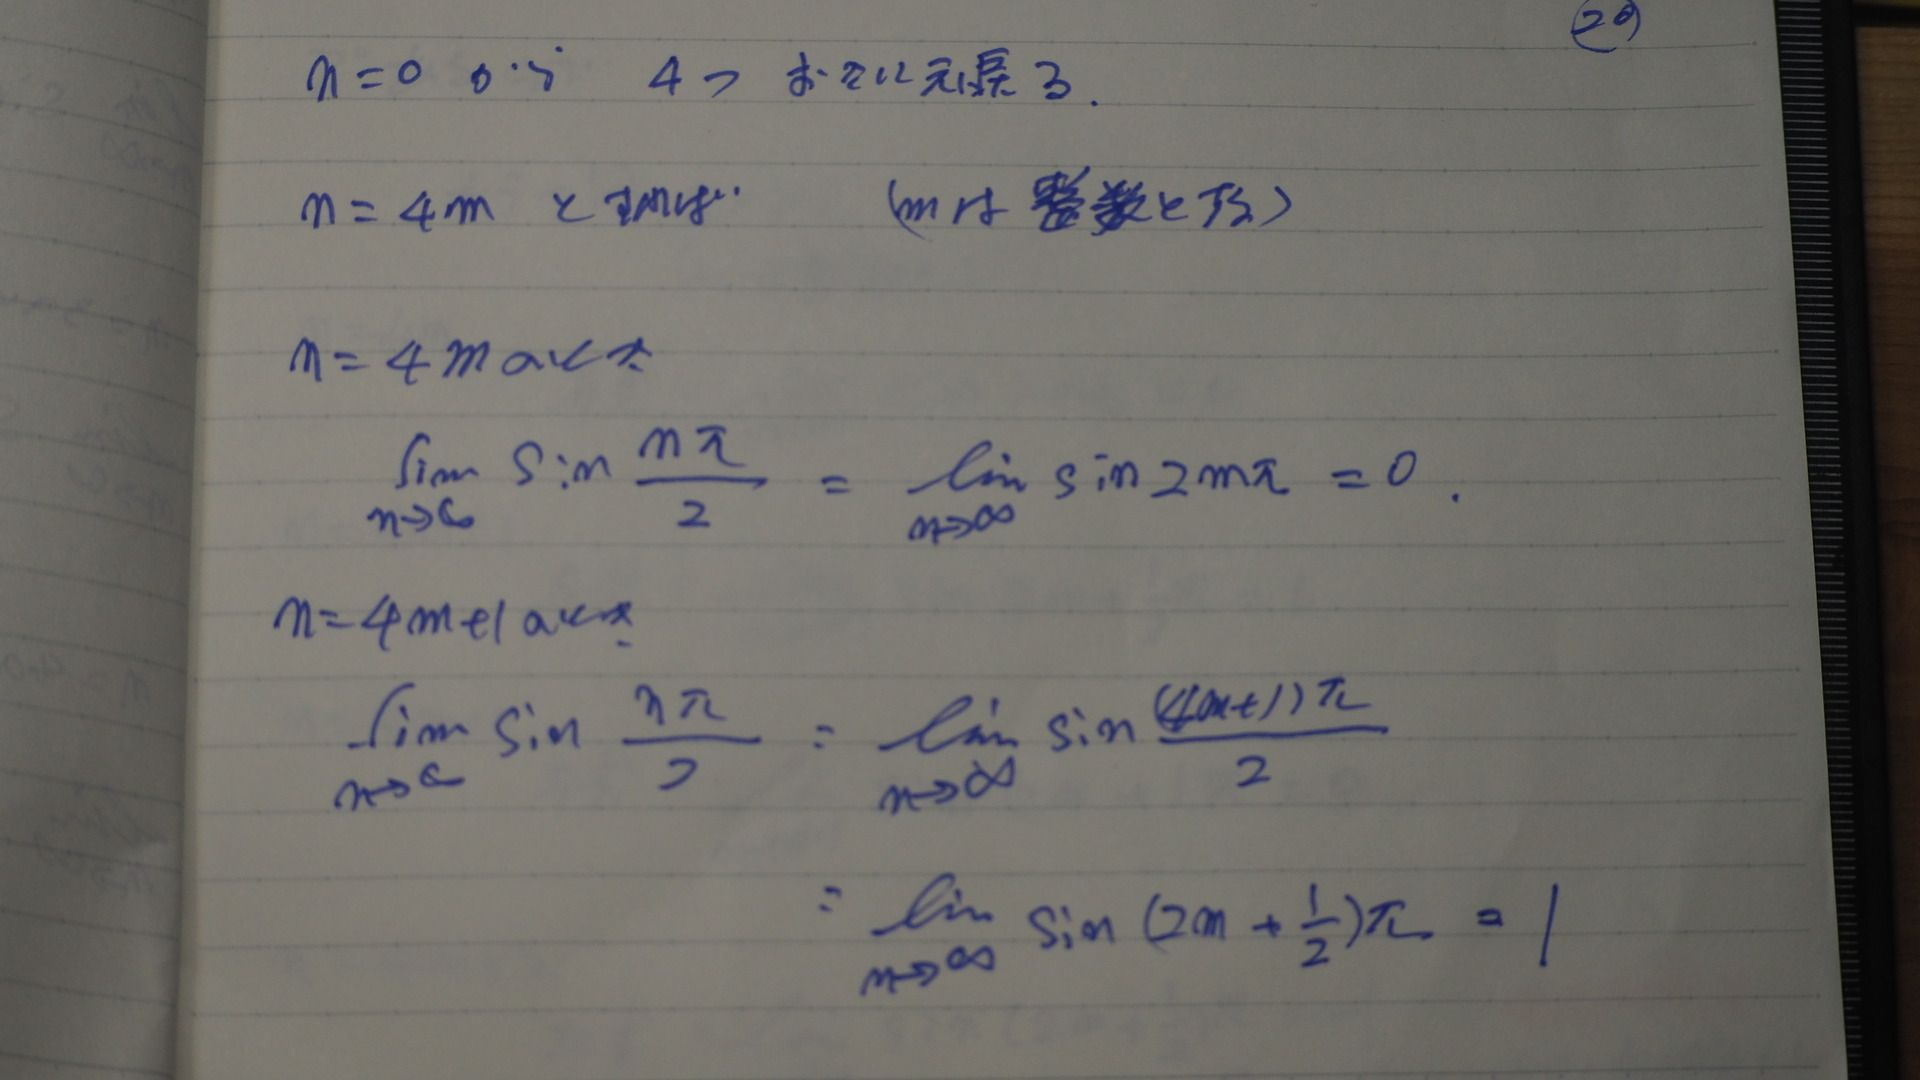 20
n=0 から 4つ おきに元に戻る.
n=4m とすれば (mは 整数とする)
n=4m のとき
lim n→∞ sin nπ/2 = lim n→∞ sin 2mπ = 0.
n=4m+1 のとき
lim n→∞ sin nπ/2 = lim n→∞ sin (4m+1)π/2
= lim n→∞ sin (2m + 1/2)π = 1